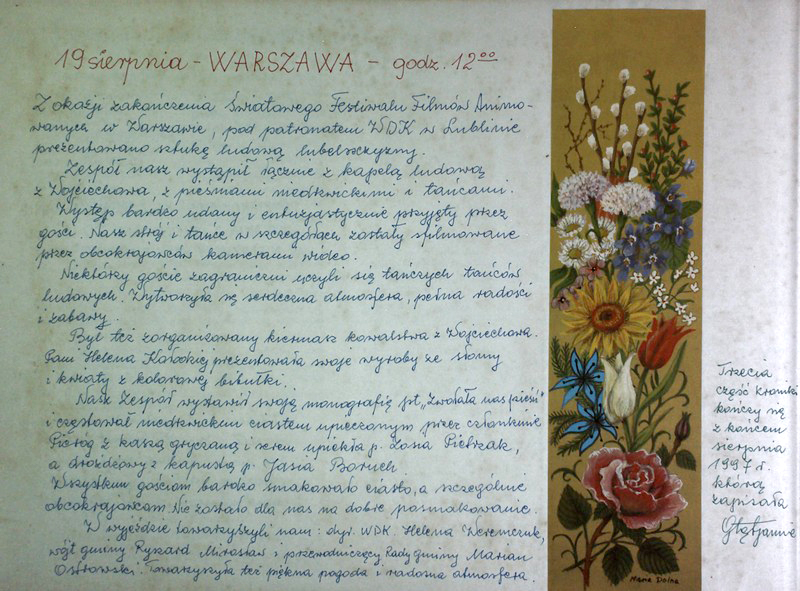 19 sierpnia - WARSZAWA - godz. 12⁰⁰
Z okazji zakończenia Światowego Festiwalu Filmów Animo-
wanych w Warszawie, pod patronatem WDK w Lublinie
prezentowano sztukę ludową lubelszczyzny.
Zespół nasz wystąpił łącznie z kapelą ludową
z Wojciechowa, z pieśniami niedrzwickimi i tańcami.
Występ bardzo udany i entuzjastycznie przyjęty przez
gości. Nasz strój i tańce w szczegółach zostały sfilmowane
przez obcokrajowców kamerami wideo.
Niektórzy goście zagraniczni uczyli się tańczyć tańców
ludowych. Wytworzyła się serdeczna atmosfera, pełna radości
i zabawy.
Był też zorganizowany kiermasz kowalstwa z Wojciechowa.
Pani Helena prezentowała swoje wyroby ze słomy
i kwiaty z kolorowej bibułki.
Nasz Zespół wystawił swoją monografię pt. „Zwołała nas pieśń"
i częstował niedrzwickim ciastem upieczonym przez członkinie
Pieróg z kaszą gryczaną i serem upiekła p. Zosia Pietrzak,
a drożdżowy z kapustą p. Jasia Boruch
Wszystkim gościom bardzo smakowało ciasto, a szczególnie
obcokrajowcom. Nie zostało dla nas na dobre posmakowanie.
W wyjeździe towarzyszyli nam: dyr. WDK Helena Weremczuk,
wójt gminy Ryszard Mirosław i przewodniczący Rady gminy Marian
Ostrowski. Towarzyszyła też piękna pogoda i radosna atmosfera.
Trzecia
część kroniki
kończy się
z końcem
sierpnia
1997 r.
którą
zapisała
Maria Dolna